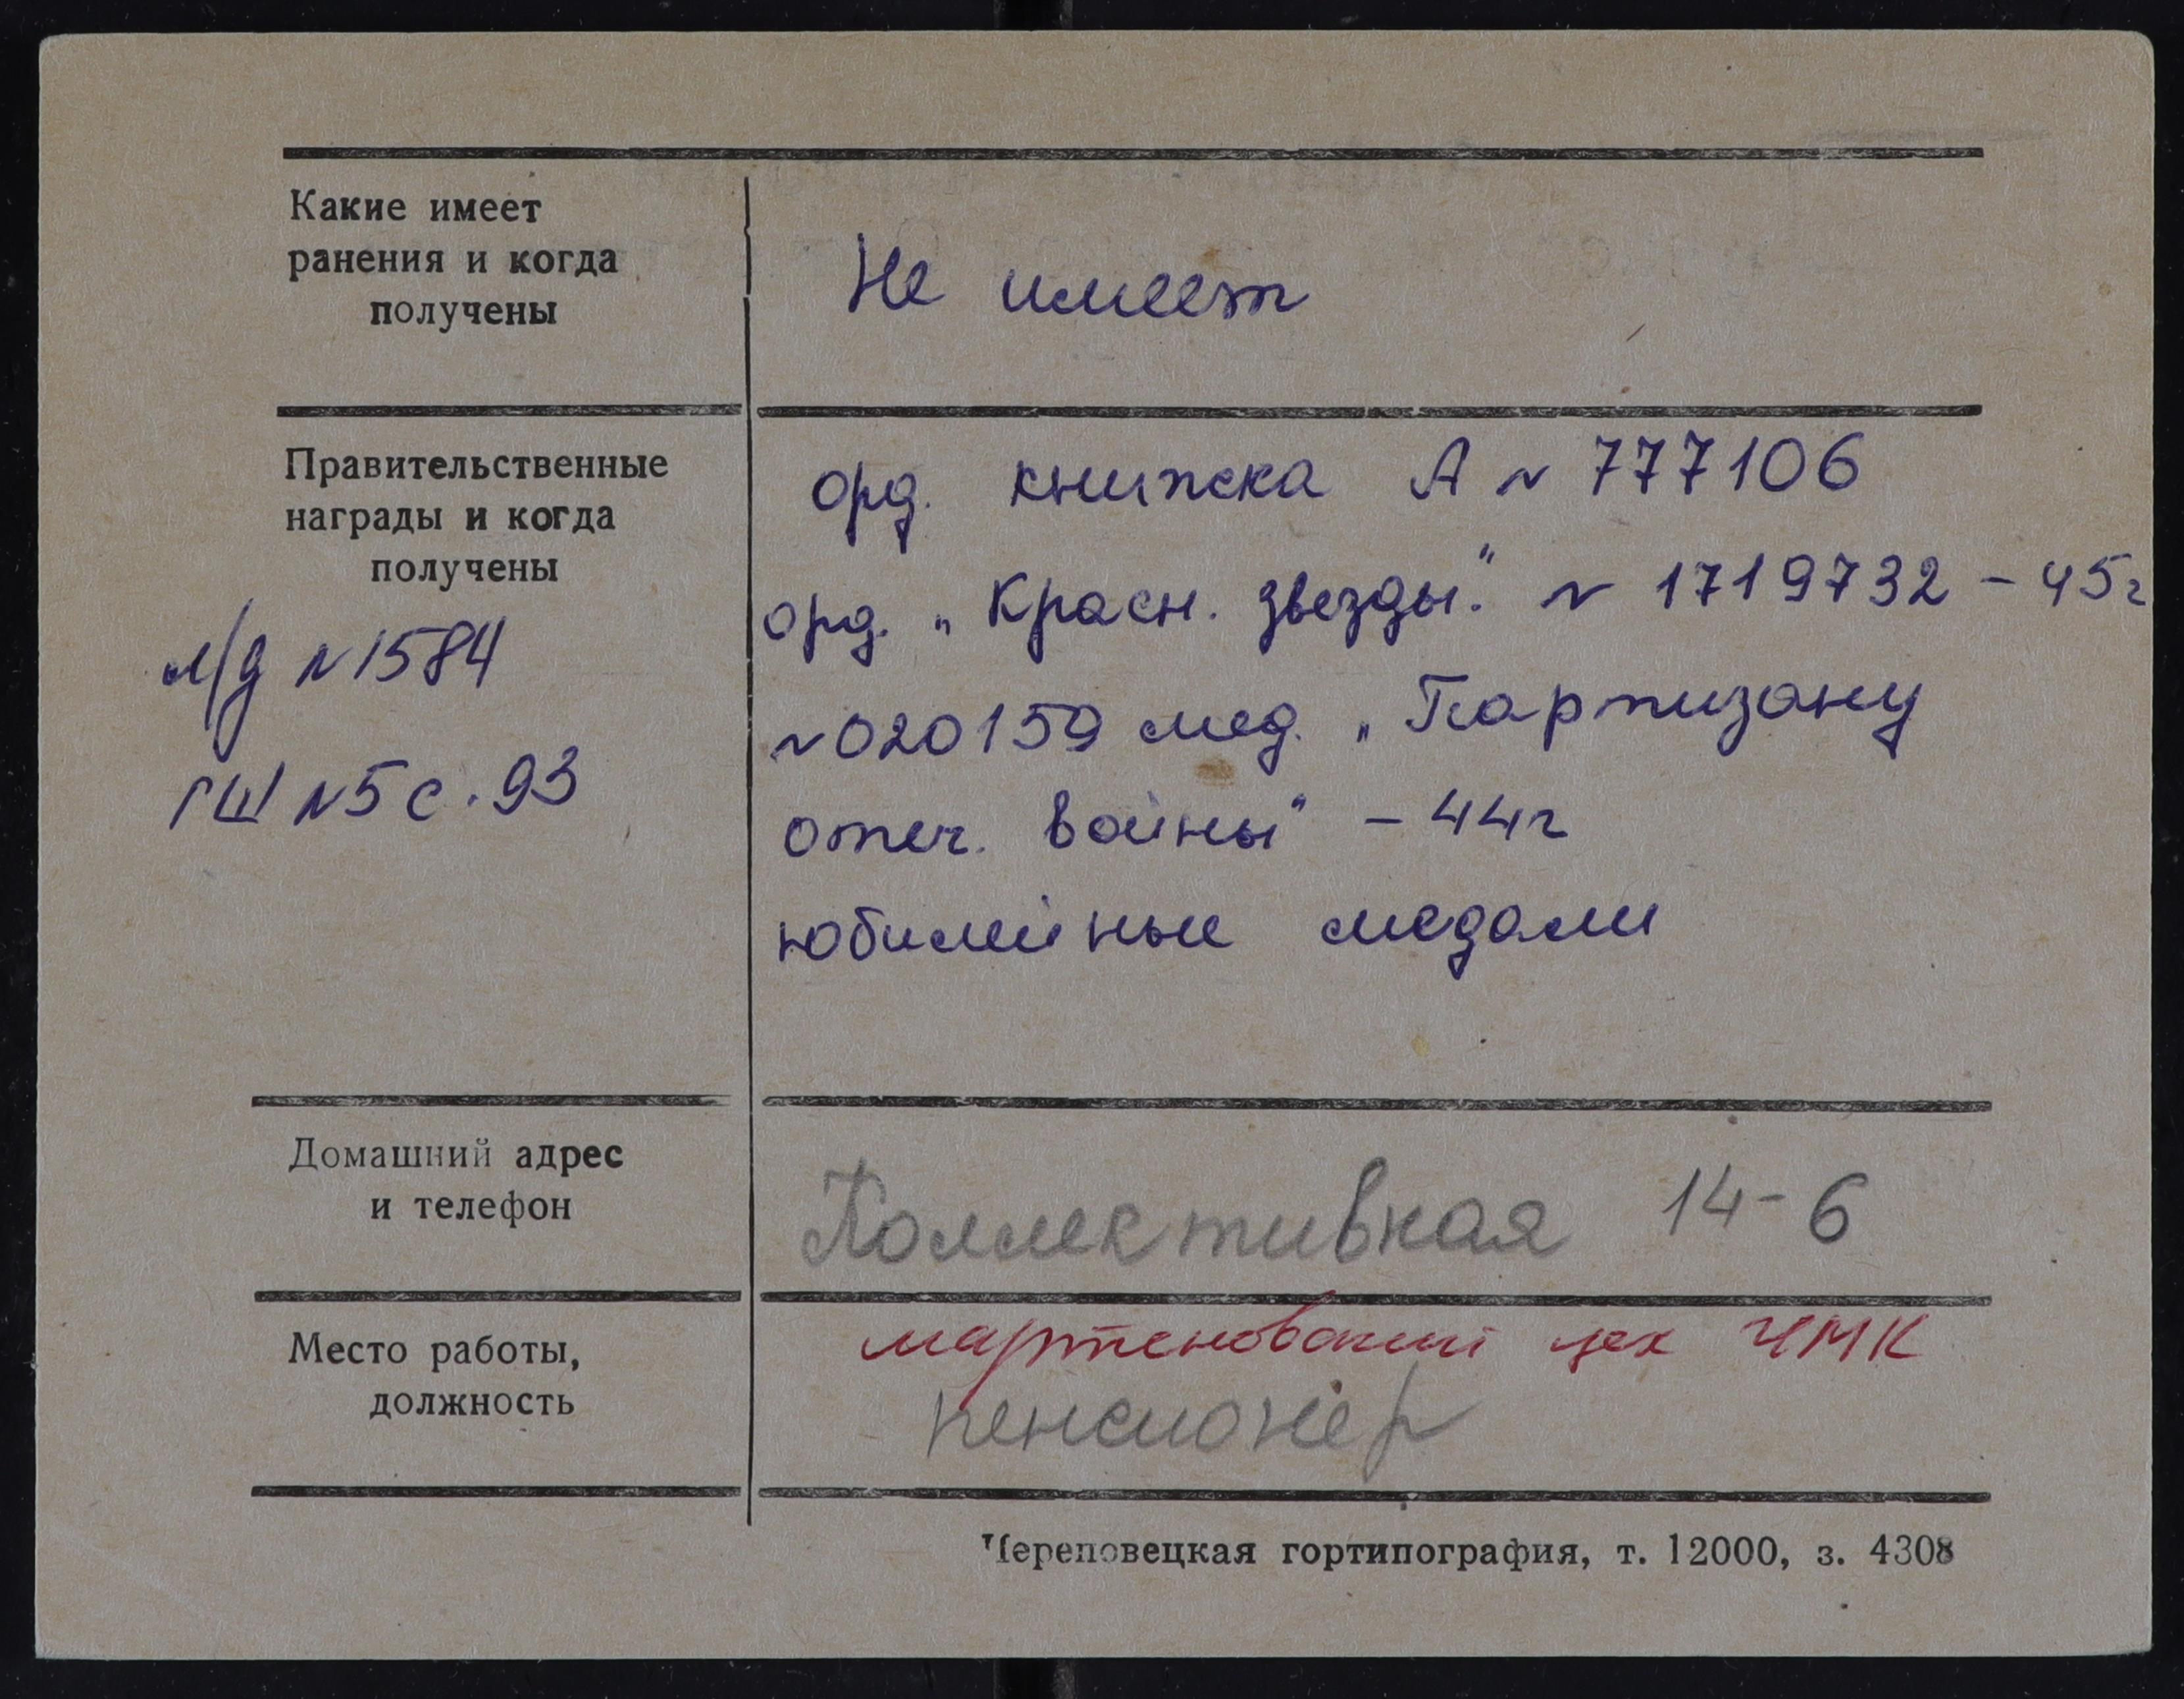 Какие имеет
ранения и когда
получены
Не имеет
Правительственные
награды и когда
получены
л/д N1584
ГШ N5 с. 93
орд. книжка А N 777106
орд. „Красн. звезды." N 1719732 – 45г
N020159 мед. „Партизану
отеч. войны" – 44г
юбилейные медали
Домашний адрес
и телефон
Коллективная 14-6
Место работы,
должность
мартеновский цех ЧМК
пенсионер
Череповецкая гортипография, т. 12000, з. 4308